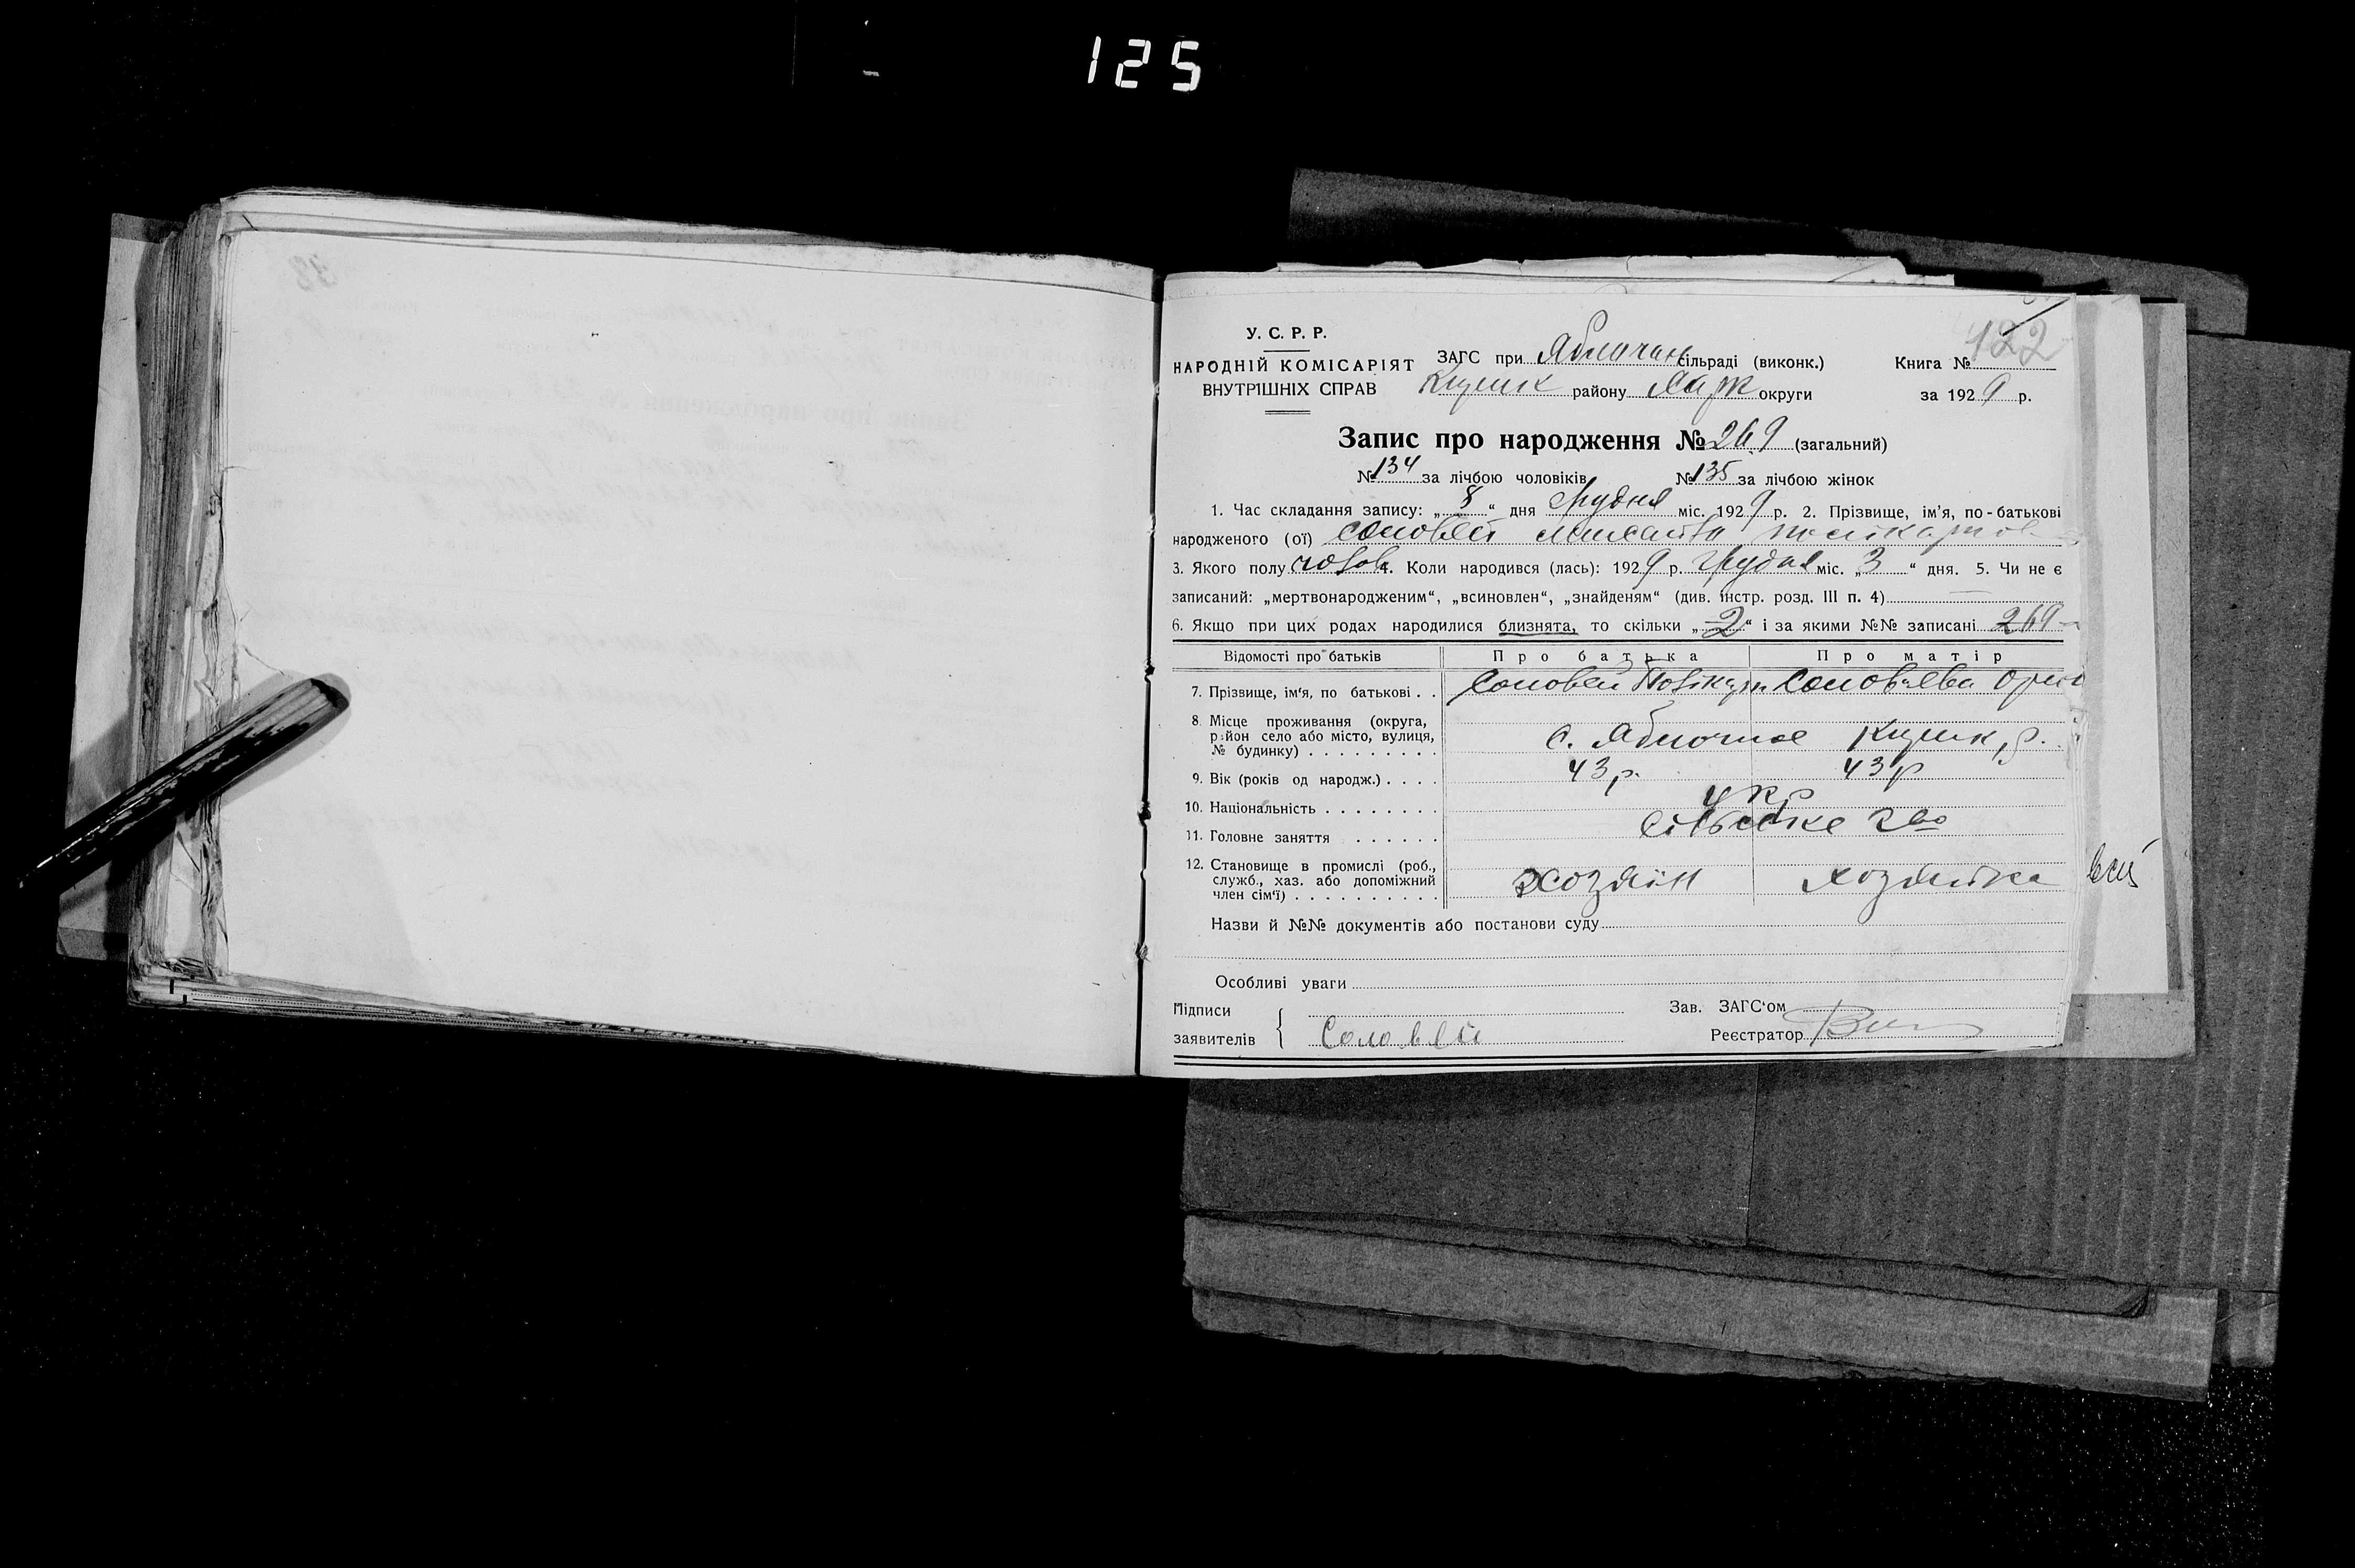 125
122
У. С. Р. Р.
НАРОДНІЙ КОМІСАРІЯТ
ВНУТРІШНІХ СПРАВ
ЗАГС при Яблочан сільраді (виконк.)
районy Харк округи
Книга №
за 1929 р.
Запис про народження № 269 (загальний)
№ 134 за лічбою чоловіків № 135 за лічбою жінок
1. Час складання запису: „ 8 “ дня Грудня міс. 1929 р. 2. Прізвище, ім’я, по-батькові
народженого (ої) Соловей Михайло
3. Якого полу чолов. 4. Коли народився (лась): 1929 р. Грудня міс. „ 3 “ дня. 5. Чи не є
записаний: „мертвонародженим“, „всиновлен“, „знайденям“ (див. інстр. розд. III п. 4)
6. Якщо при цих родах народилися близнята, то скільки „ 2 “ і за якими №№ записані 269
Відомості про батьків Про батька Про матір
7. Прізвище, ім‘я, по батькові . . Соловей Полікарп Соловьева
8. Місце проживання (округа,
район село або місто, вулиця,
№ будинку) . . . . . . . . . с. Яблочное р.
9. Вік (років од народж.) . . . . 43 р. 43 р
10. Національність . . . . . . . . укр
11. Головне заняття . . . . . . Сільське г-во
12. Становище в промислі (роб.,
служб., хаз. або допоміжний
член сім‘ї) . . . . . . . . . . хозяїн хозяйка
Назви й №№ документів або постанови суду
Особливі уваги
Підписи
заявителів Соловей
Зав. ЗАГС‘ом
Реєстратор